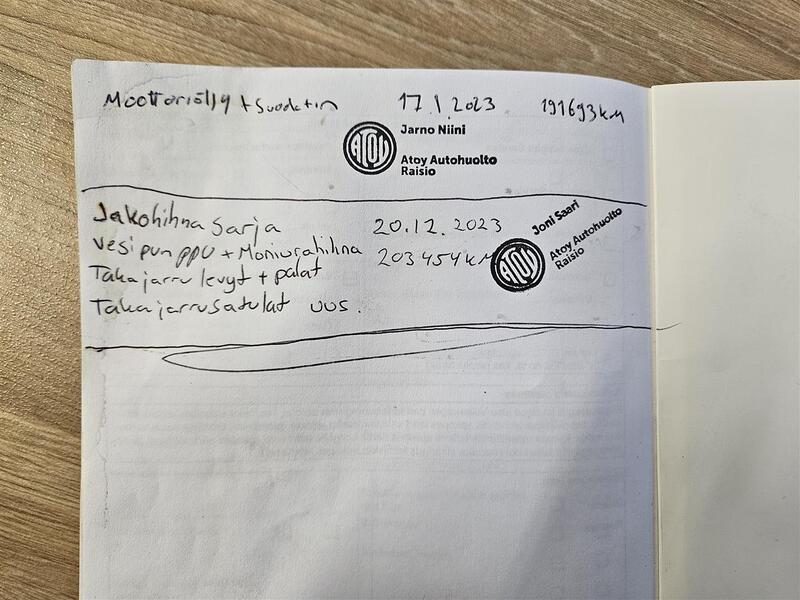 Moottoriöljy + Suodatin 17.1.2023 191693km
ATOY
Jarno Niini
Atoy Autohuolto
Raisio
Jakohihna Sarja 20.12.2023
Vesipumppu + Moniurahihna 203454KM
Takajarru levyt + palat
Takajarrusatulat uus.
ATOY
Joni Saari
Atoy Autohuolto
Raisio